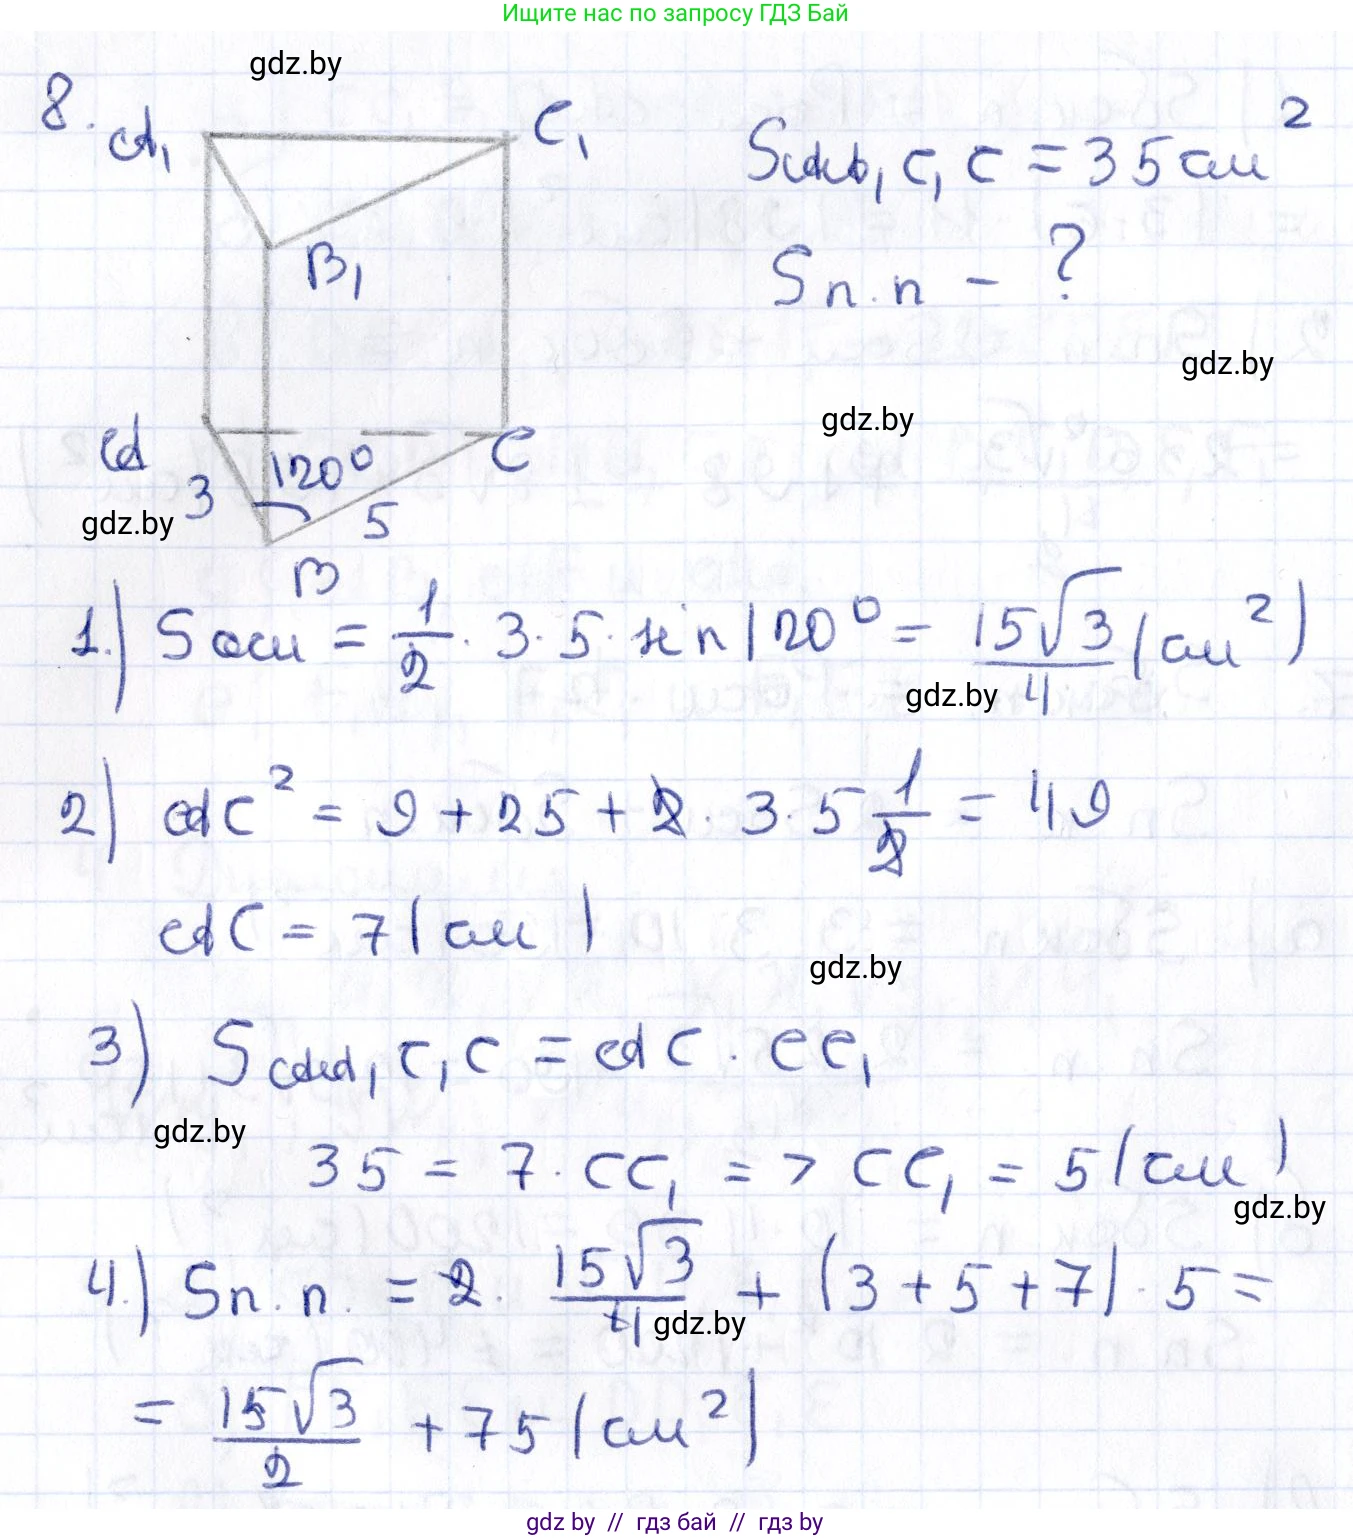 Ищите нас по запросу ГДЗ Бай
gdz.by
8.
A₁
C₁
B₁
S_{AA₁C₁C} = 35 см²
S п.п - ?
gdz.by
gdz.by
A
C
120°
3
5
gdz.by
B
1.) S осн = 1/2 · 3 · 5 · sin 120° = 15√3/4 (см²)
gdz.by
2) AC² = 9 + 25 + 2 · 3 · 5 1/2 = 49
AC = 7 (см)
gdz.by
3) S_{AA₁C₁C} = AC · CC₁
gdz.by
35 = 7 · CC₁ => CC₁ = 5 (см)
gdz.by
4.) S п.п. = 2 · 15√3/4 + (3 + 5 + 7) · 5 =
gdz.by
= 15√3/2 + 75 (см²)
gdz by // гдз бай // gdz by